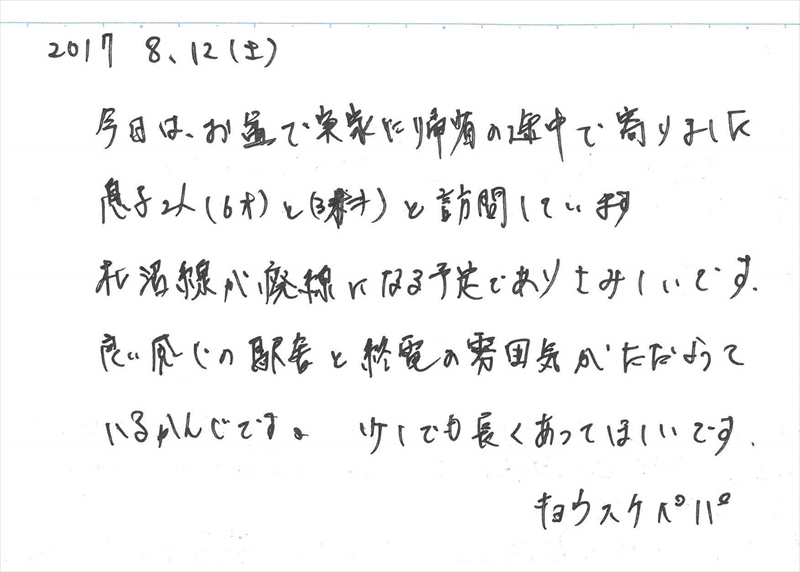 2017 8.12(土)
今日は、お盆で実家に帰省の途中で寄りました
息子2人(6才)と(3才)と訪問しています
札沼線が廃線になる予定でありさみしいです.
良い感じの駅舎と終電の雰囲気がただよって
いるかんじです。 少しでも長くあってほしいです.
キョウスケパパ